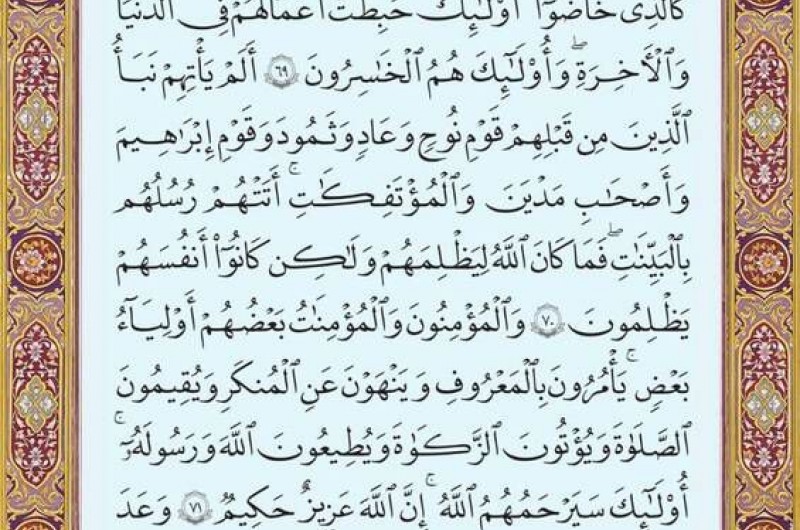 كَالَّذِي خَاضُوٓا۟ أُو۟لَـٰٓئِكَ حَبِطَتْ أَعْمَـٰلُهُمْ فِي ٱلدُّنْيَا
وَٱلْـَٔاخِرَةِ ۖ وَأُو۟لَـٰٓئِكَ هُمُ ٱلْخَـٰسِرُونَ ٦٩ أَلَمْ يَأْتِهِمْ نَبَأُ
ٱلَّذِينَ مِن قَبْلِهِمْ قَوْمِ نُوحٍ وَعَادٍ وَثَمُودَ وَقَوْمِ إِبْرَٰهِيمَ
وَأَصْحَـٰبِ مَدْيَنَ وَٱلْمُؤْتَفِكَـٰتِ ۚ أَتَتْهُمْ رُسُلُهُم
بِٱلْبَيِّنَـٰتِ ۖ فَمَا كَانَ ٱللَّهُ لِيَظْلِمَهُمْ وَلَـٰكِن كَانُوٓا۟ أَنفُسَهُمْ
يَظْلِمُونَ ٧٠ وَٱلْمُؤْمِنُونَ وَٱلْمُؤْمِنَـٰتُ بَعْضُهُمْ أَوْلِيَآءُ
بَعْضٍ ۚ يَأْمُرُونَ بِٱلْمَعْرُوفِ وَيَنْهَوْنَ عَنِ ٱلْمُنكَرِ وَيُقِيمُونَ
ٱلصَّلَوٰةَ وَيُؤْتُونَ ٱلزَّكَوٰةَ وَيُطِيعُونَ ٱللَّهَ وَرَسُولَهُۥٓ ۚ
أُو۟لَـٰٓئِكَ سَيَرْحَمُهُمُ ٱللَّهُ ۗ إِنَّ ٱللَّهَ عَزِيزٌ حَكِيمٌ ٧١ وَعَدَ